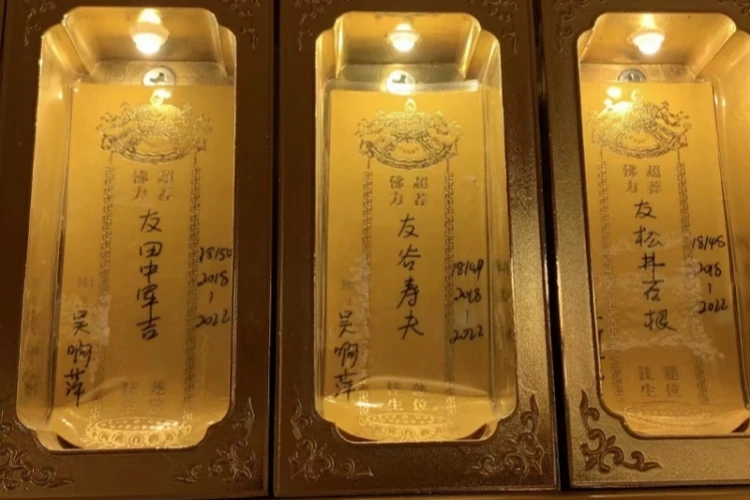 佛力
超荐
友田中军吉
18/50
2018
|
2022
吴啊萍
往生
莲位
佛力
超荐
友谷寿夫
18/49
2018
|
2022
吴啊萍
往生
莲位
佛力
超荐
友松井石根
18/48
2018
|
2022
往生
莲位